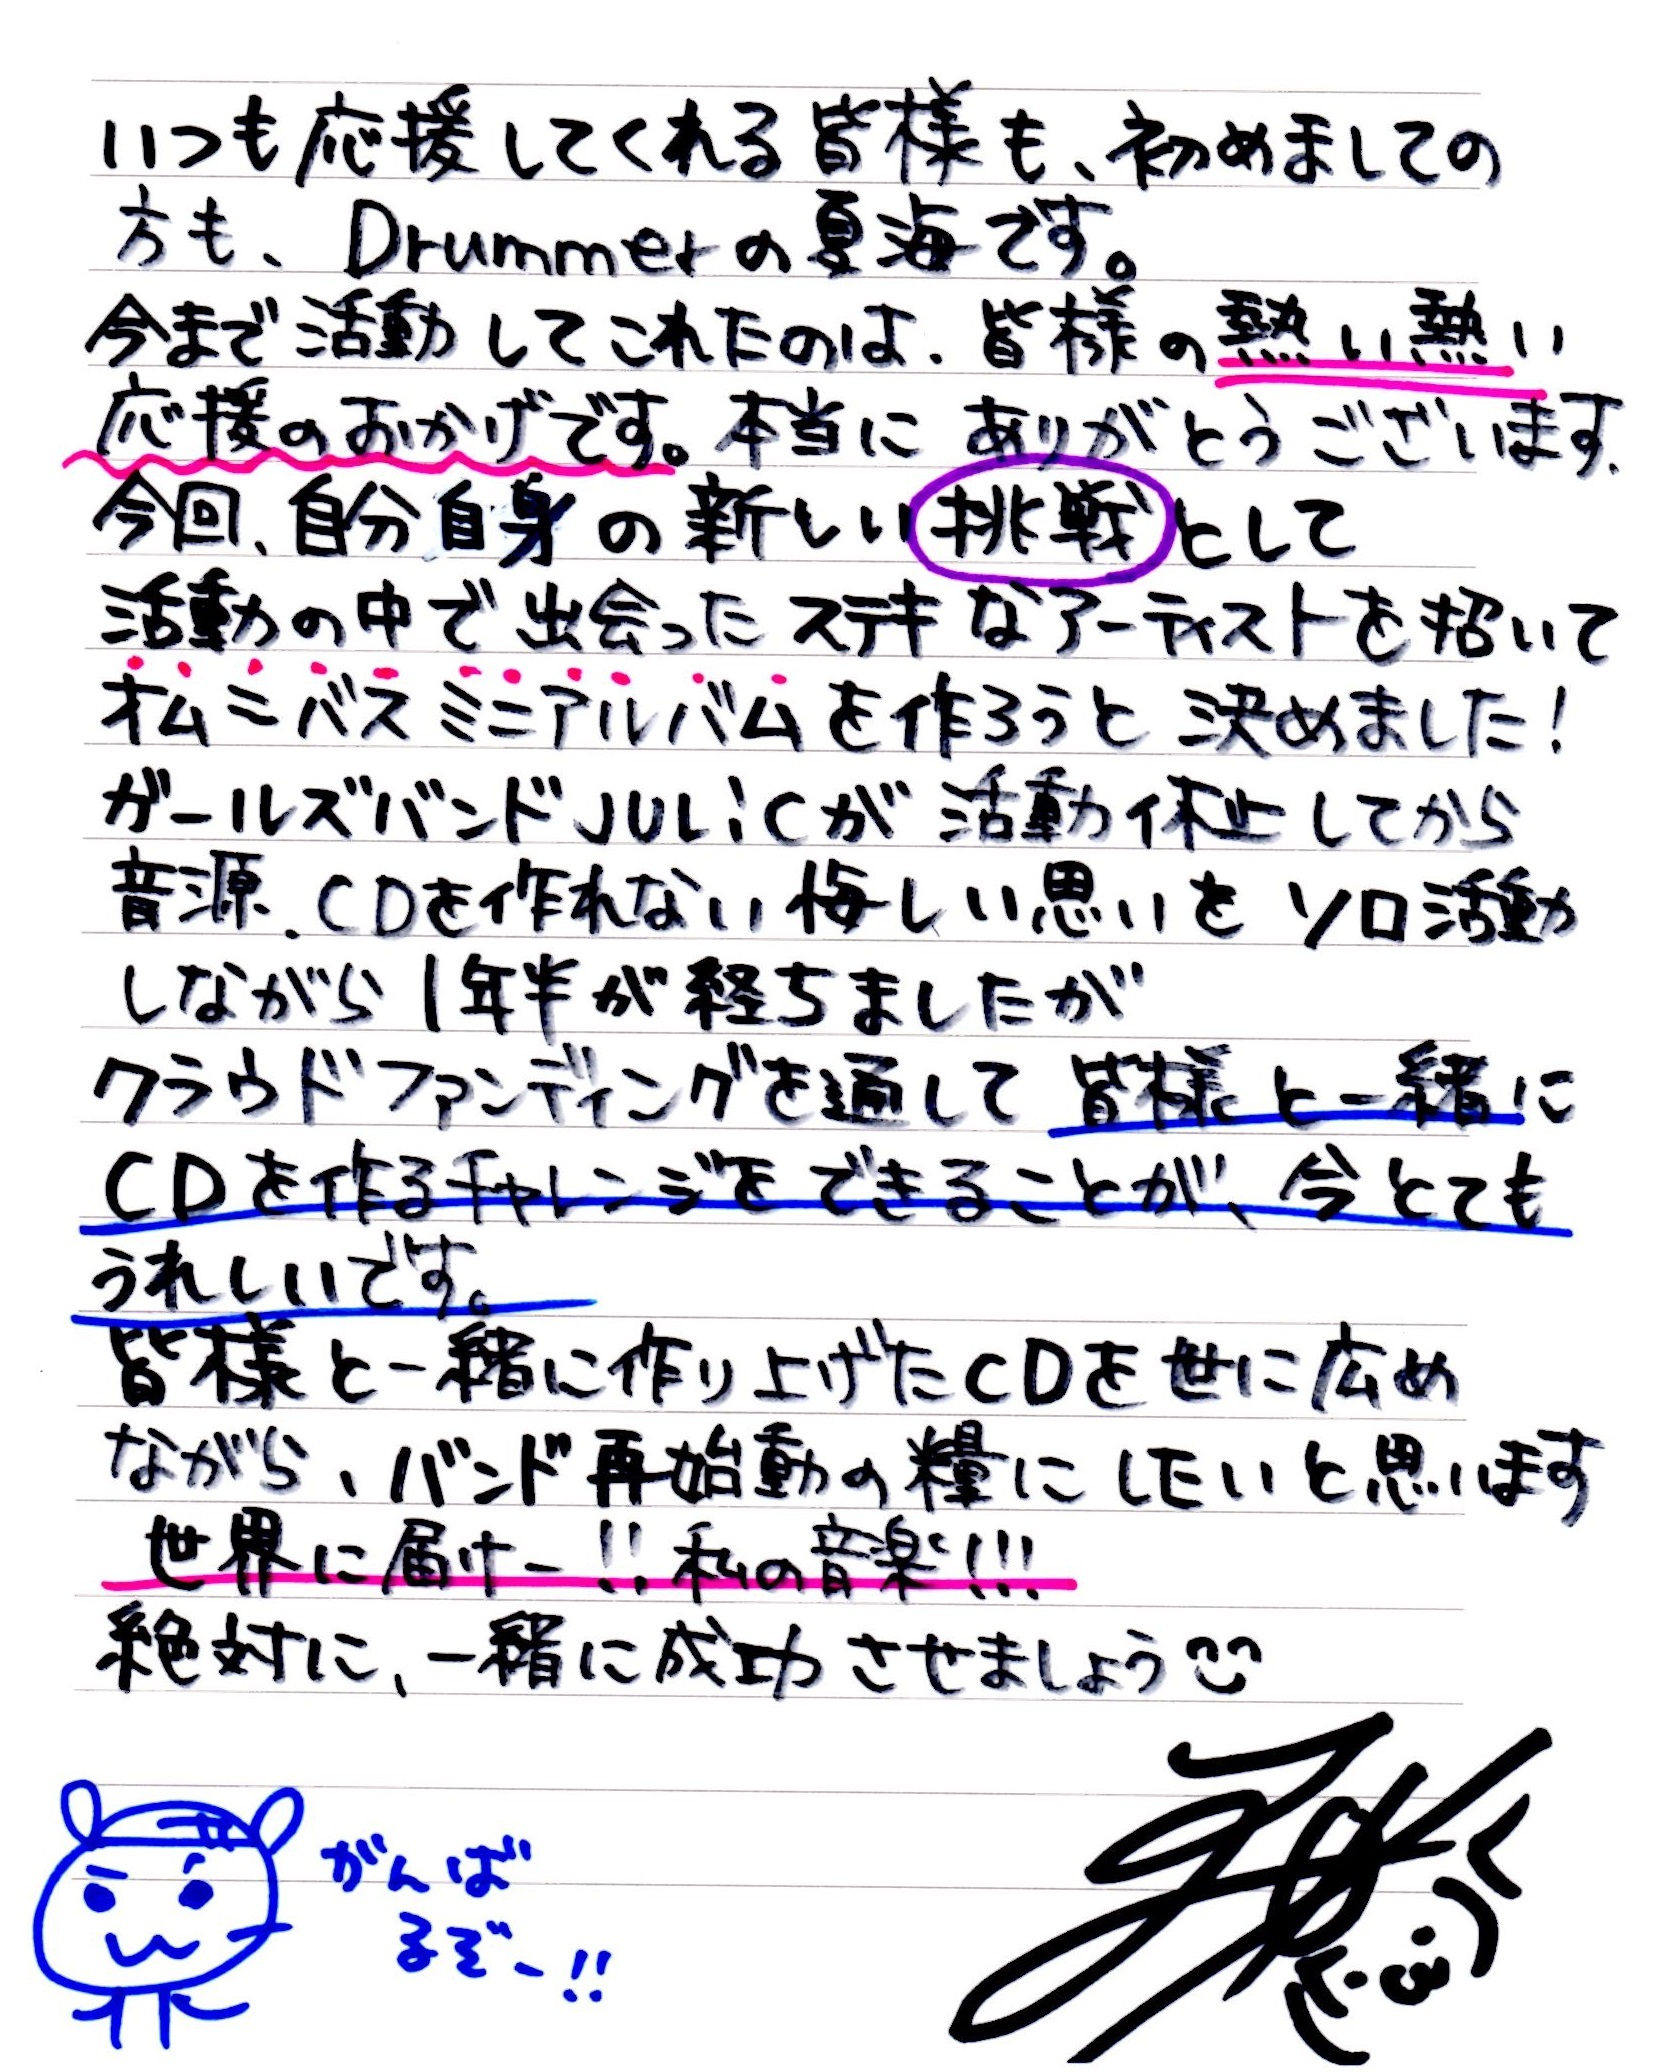 いつも応援してくれる皆様も、初めましての
方も、Drummerの夏海です。
今まで活動してこれたのは、皆様の熱い熱い
応援のおかげです。本当にありがとうございます.
今回、自分自身の新しい挑戦として
活動の中で出会ったステキなアーティストを招いて
オムニバスミニアルバムを作ろうと決めました!
ガールズバンドJULiCが活動休止してから
音源、CDを作れない悔しい思いをソロ活動
しながら1年半が経ちましたが
クラウドファンディングを通して皆様と一緒に
CDを作るチャレンジをできることが、今とても
うれしいです。
皆様と一緒に作り上げたCDを世に広め
ながら、バンド再始動の糧にしたいと思います
世界に届けー!!私の音楽!!!
絶対に、一緒に成功させましょう
がんば
るぞー!!